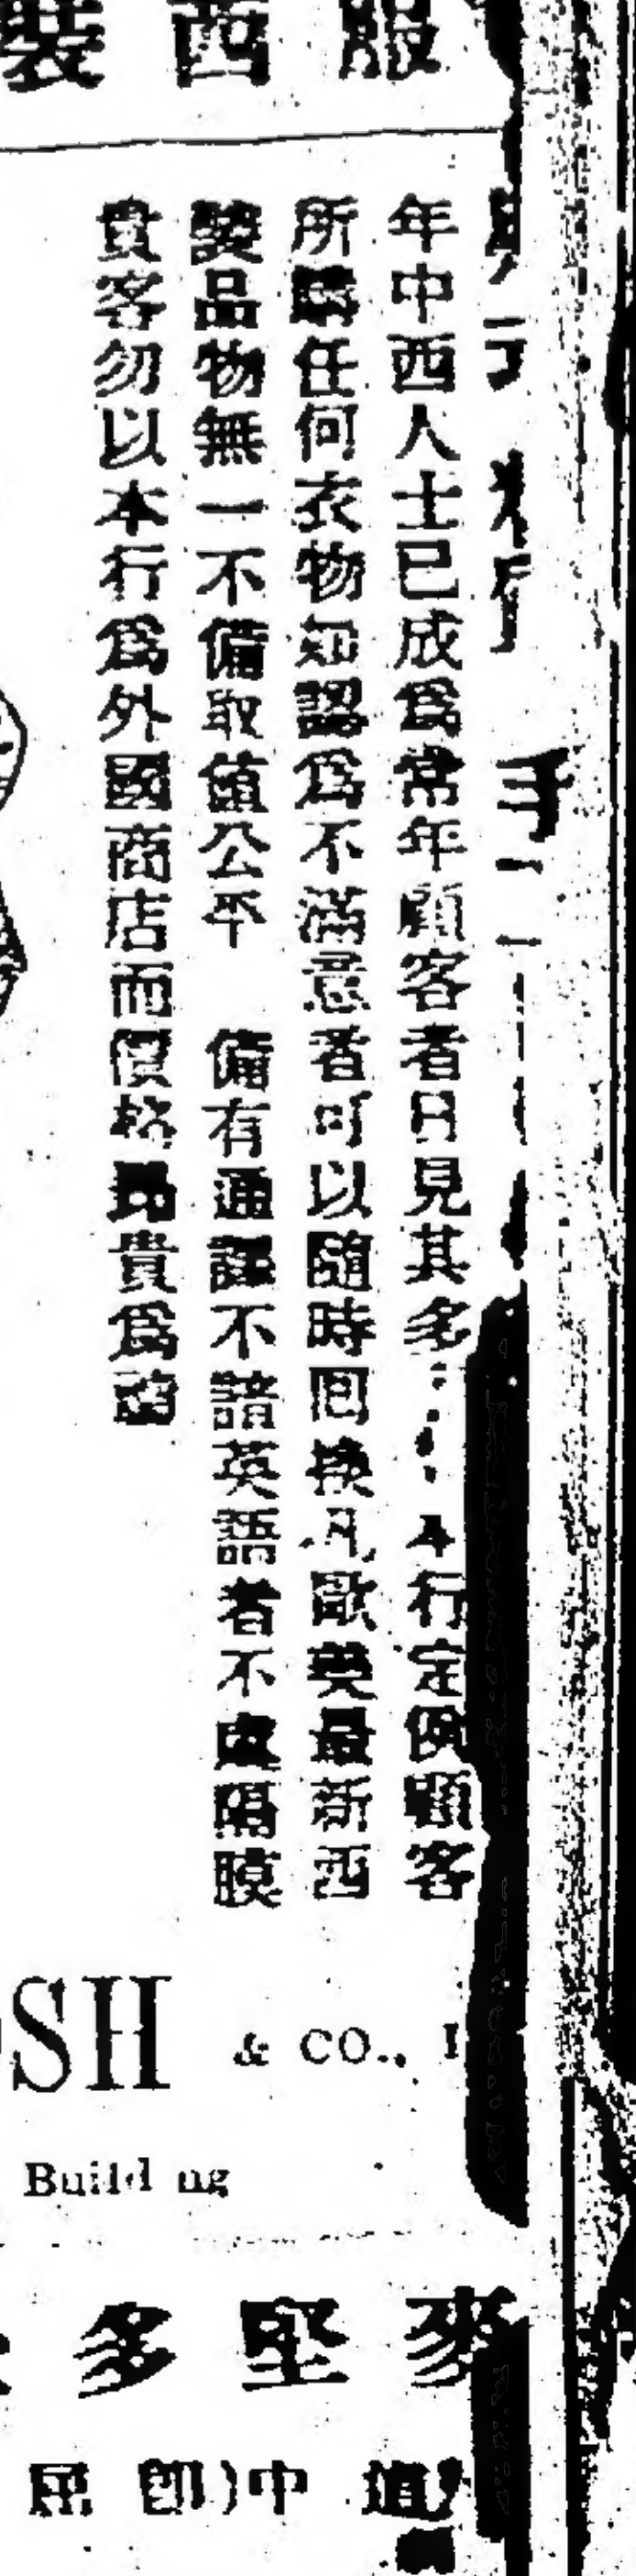 服西裝
年中西人士已成爲常年顧客者日見其多 本行定例顧客
所購任何衣物如認爲不滿意者可以隨時囘換凡歐美最新西
裝品物無一不備取値公平 備有通譯不諳英語者不虞隔膜
貴客勿以本行爲外國商店而價格昂貴爲
SH & CO.,
Building
麥堅多
道中(即